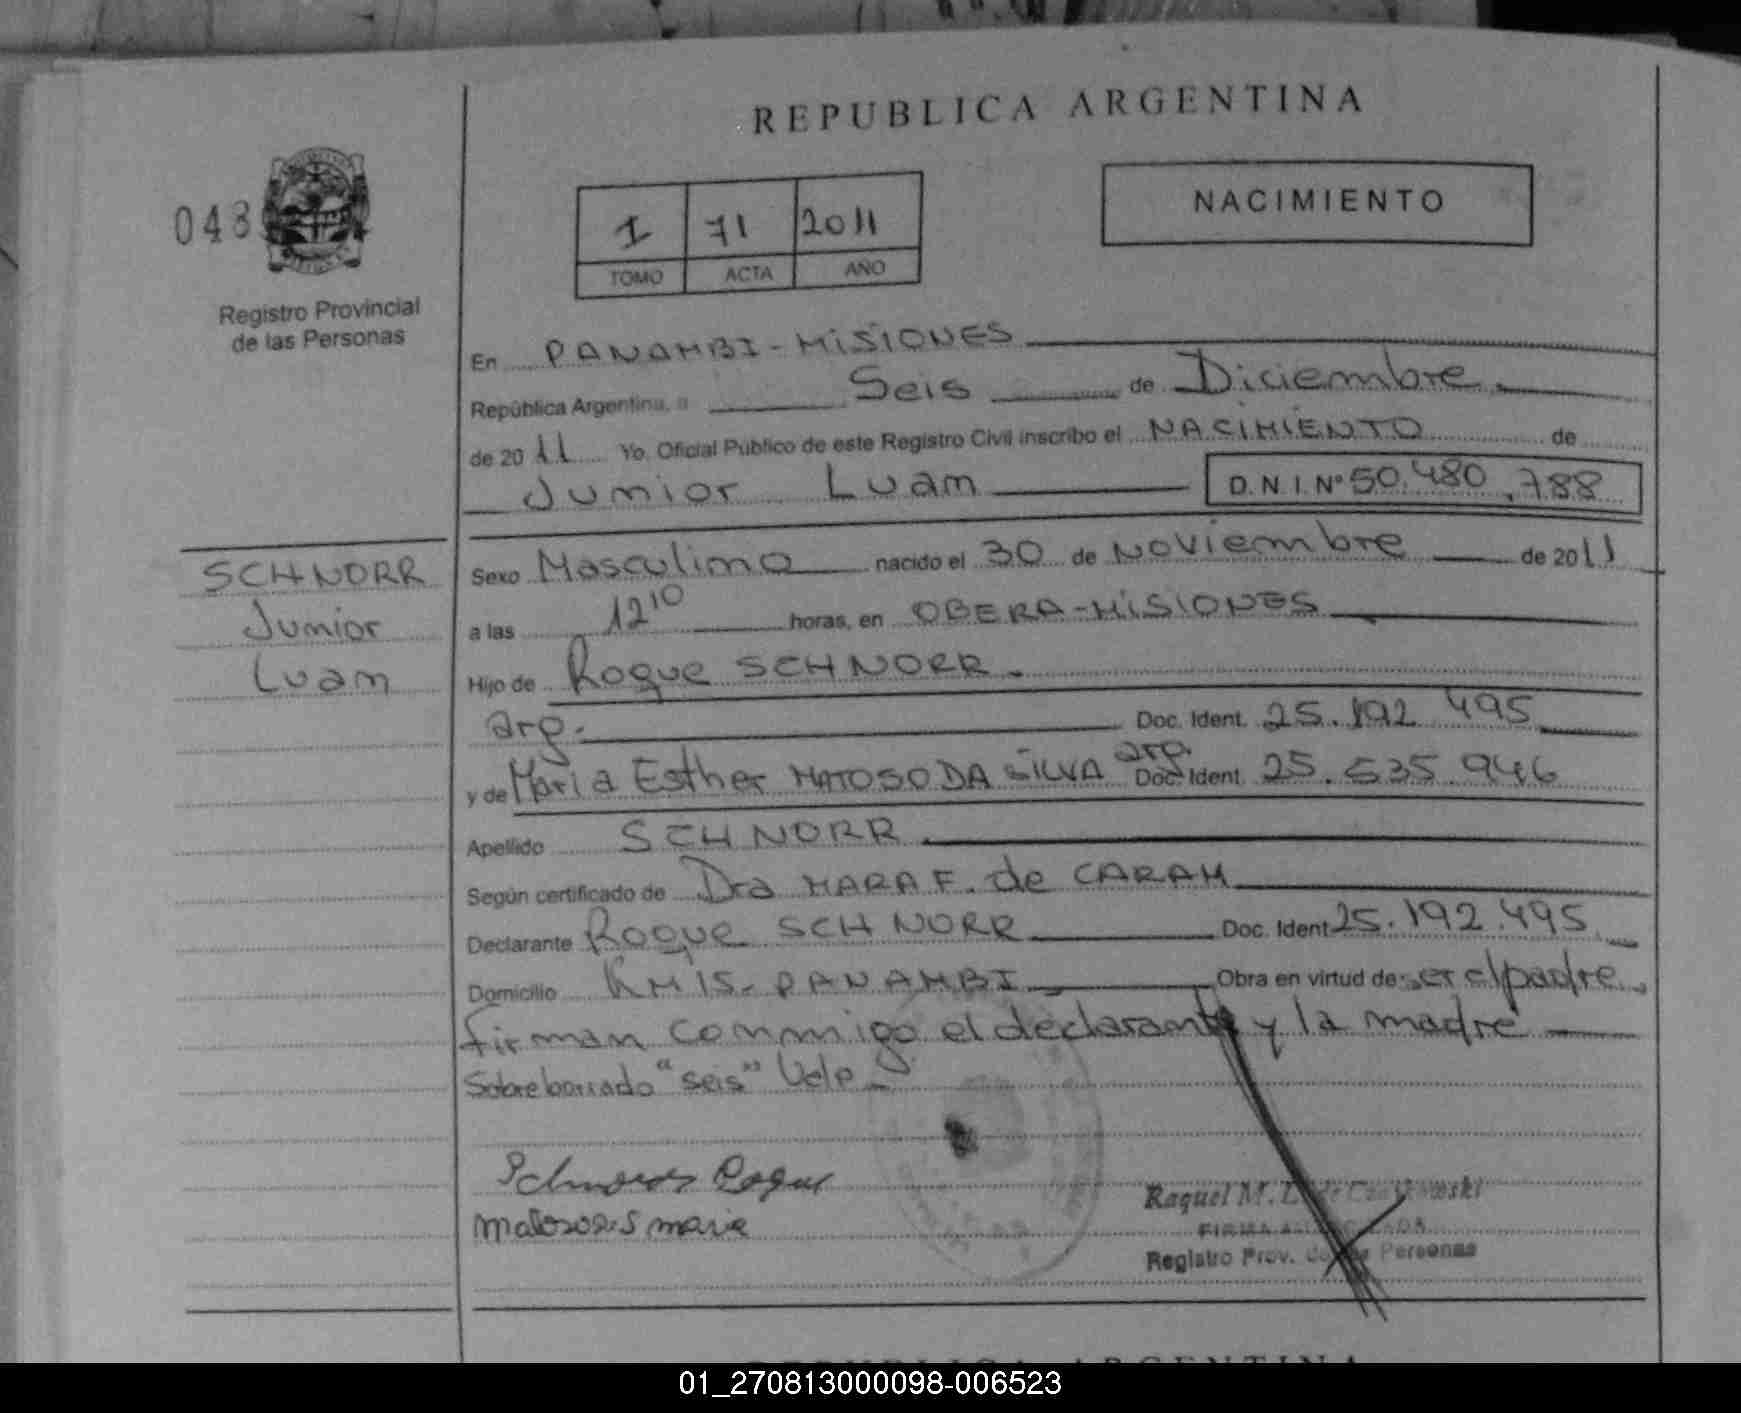 REPUBLICA ARGENTINA
NACIMIENTO
043
1 71 2011
TOMO ACTA AÑO
Registro Provincial
de las Personas
En PANAMBI-MISIONES
República Argentina, a Seis de Diciembre
de 2011 Yo, Oficial Público de este Registro Civil inscribo el NACIMIENTO de
Junior Luan D.N.I. Nº 50.480.788
SCHNORR
Junior
Luan
Sexo Masculino nacido el 30 de Noviembre de 2011
a las 12 10 horas, en OBERA-MISIONES
Hijo de Roque SCHNORR.
arg. Doc. Ident. 25.192 495
y de Maria Esther MATOSO DA SILVA arg. Doc. Ident. 25.535.946
Apellido SCHNORR.
Según certificado de Dra MARA F. de CARAM
Declarante Roque SCHNORR Doc. Ident 25.192.495
Domicilio KM 15. PANAMBI Obra en virtud de: ser el padre.
firman conmigo el declarante y la madre
Sobreborrado "seis" Vale
Roque
maria
Raquel M.
FIRMA
Registro Prov. de las Personas
REPUBLICA ARGENTINA
01_270813000098-006523